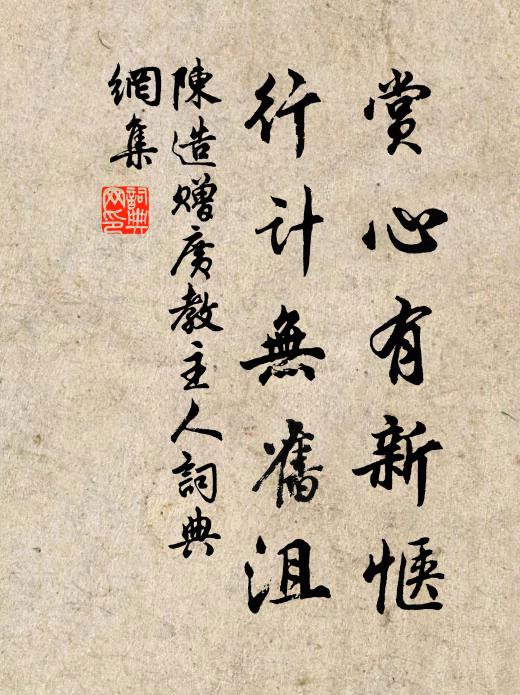 賞心有新愜
行計無舊沮
陳造贈廣教主人詞典
網集
詞典網印